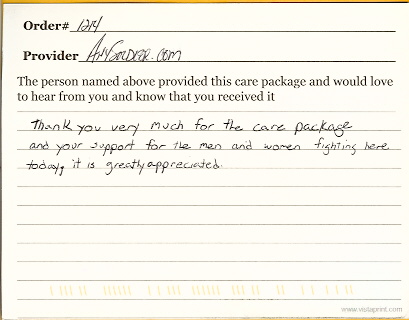 Order# 1214
Provider AnySoldier.com
The person named above provided this care package and would love
to hear from you and know that you received it
Thank you very much for the care package
and your support for the men and women fighting here
today, it is greatly appreciated.
www.vistaprint.com